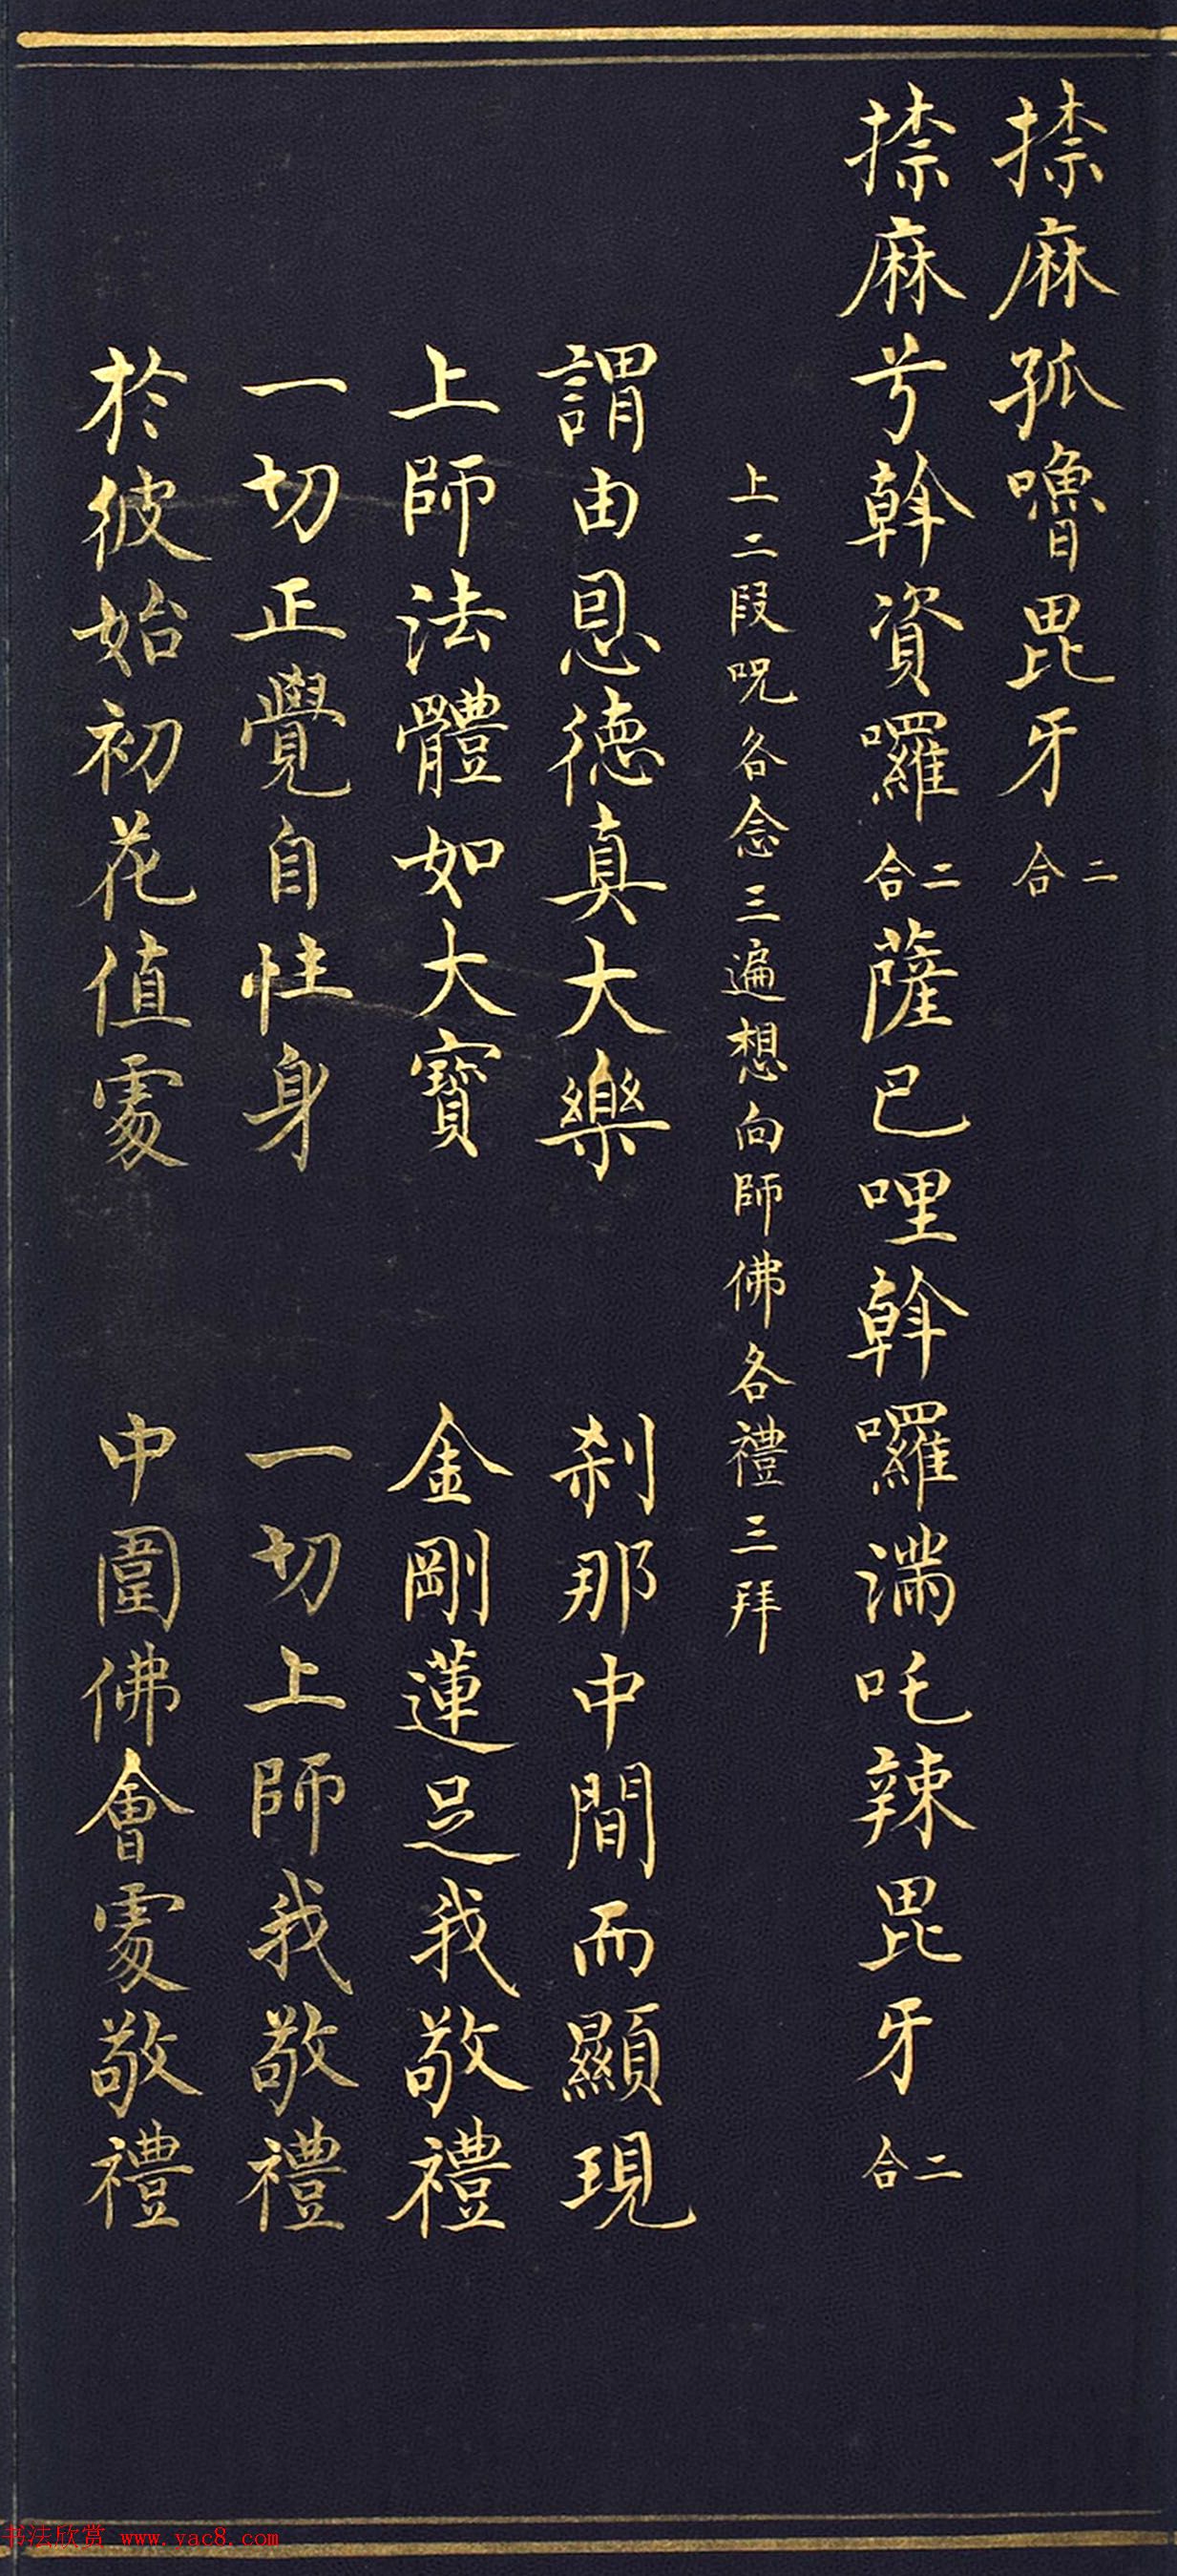 捺麻孤嚕毘牙二合
捺麻兮斡資囉二合薩巴哩斡囉喃吒辢毘牙二合
上二段呪各念三遍想向師佛各禮三拜
謂由恩德真大樂 剎那中間而顯現
上師法體如大寶 金剛蓮足我敬禮
一切正覺自性身 一切上師我敬禮
於彼始初花值處 中圍佛會處敬禮
书法欣赏 www.yac8.com